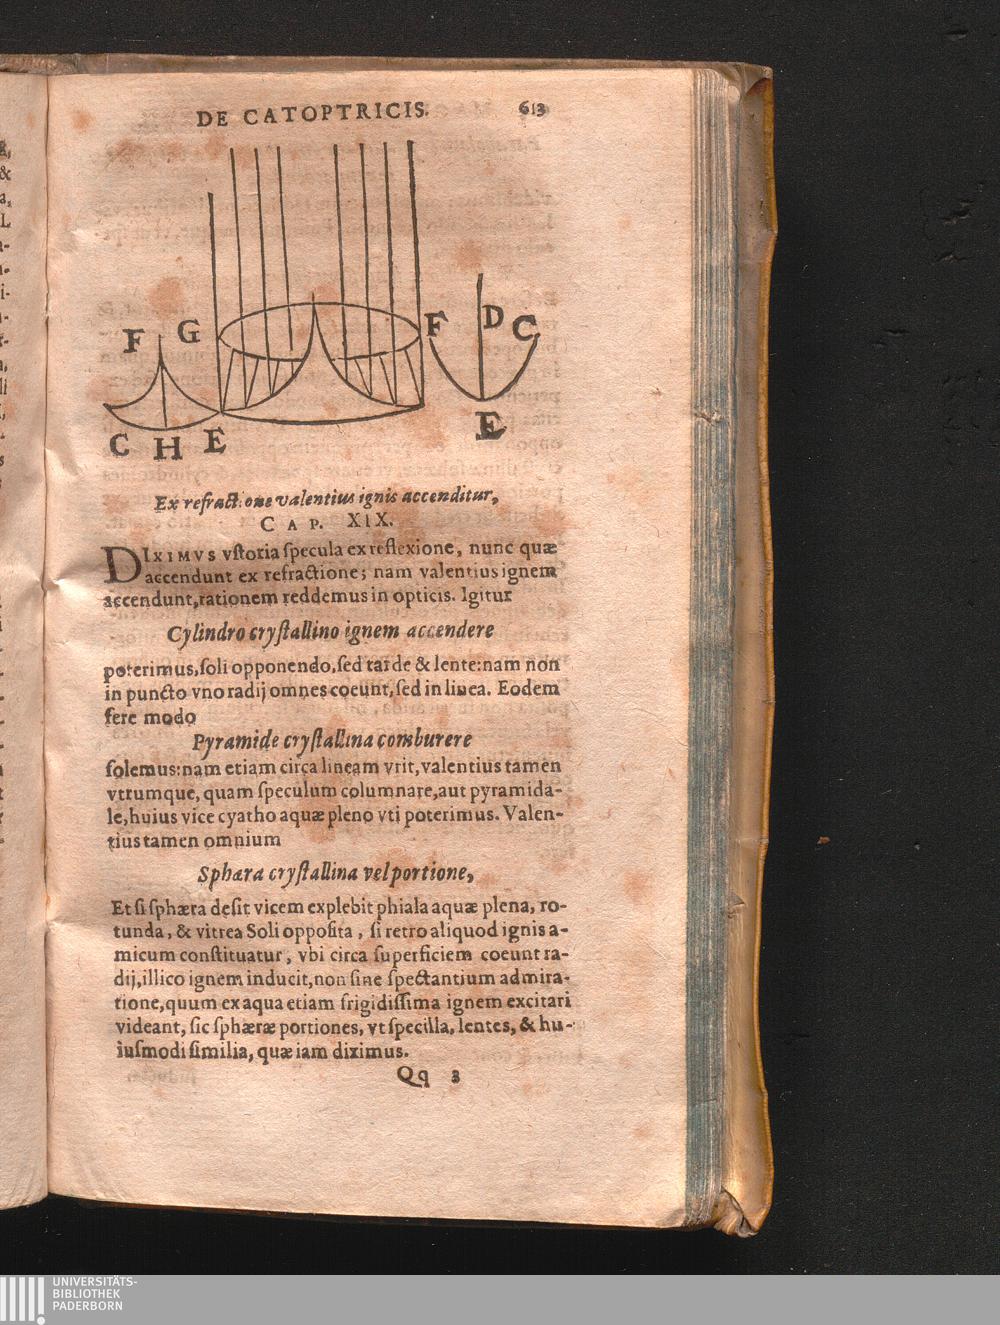 DE CATOPTRICIS. 613
F G F D C
C H E E
Ex refractione valentius ignis accenditur,
CAP. XIX.
DIXIMVS vſtoria ſpecula ex reflexione, nunc quæ
accendunt ex refractione; nam valentius ignem
accendunt, rationem reddemus in opticis. Igitur
Cylindro cryſtallino ignem accendere
poterimus, ſoli opponendo, ſed tarde & lente: nam non
in puncto vno radij omnes coeunt, ſed in linea. Eodem
fere modo
Pyramide cryſtallina comburere
ſolemus: nam etiam circa lineam vrit, valentius tamen
vtrumque, quam ſpeculum columnare, aut pyramida-
le, huius vice cyatho aquæ pleno vti poterimus. Valen-
tius tamen omnium
Sphæra cryſtallina vel portione,
Et ſi ſphæra deſit vicem explebit phiala aquæ plena, ro-
tunda, & vitrea Soli oppoſita, ſi retro aliquod ignis a-
micum conſtituatur, vbi circa ſuperficiem coeunt ra-
dij, illico ignem inducit, non ſine ſpectantium admira-
tione, quum ex aqua etiam frigidiſſima ignem excitari
videant, ſic ſphæræ portiones, vt ſpecilla, lentes, & hu-
iuſmodi ſimilia, quæ iam diximus.
Qq 3
UNIVERSITÄTS-
BIBLIOTHEK
PADERBORN